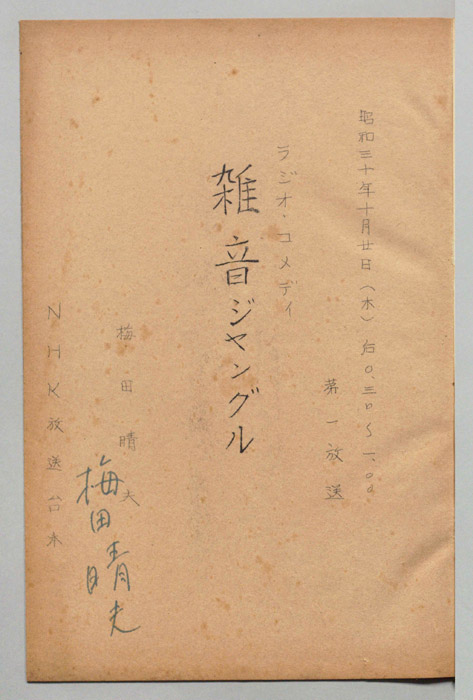 昭和三十年十月廿日（木）后０．三〇〜一．〇〇
第一放送
ラジオ・コメディ
雑音ジャングル
梅田晴夫
梅田晴夫
NHK放送台本